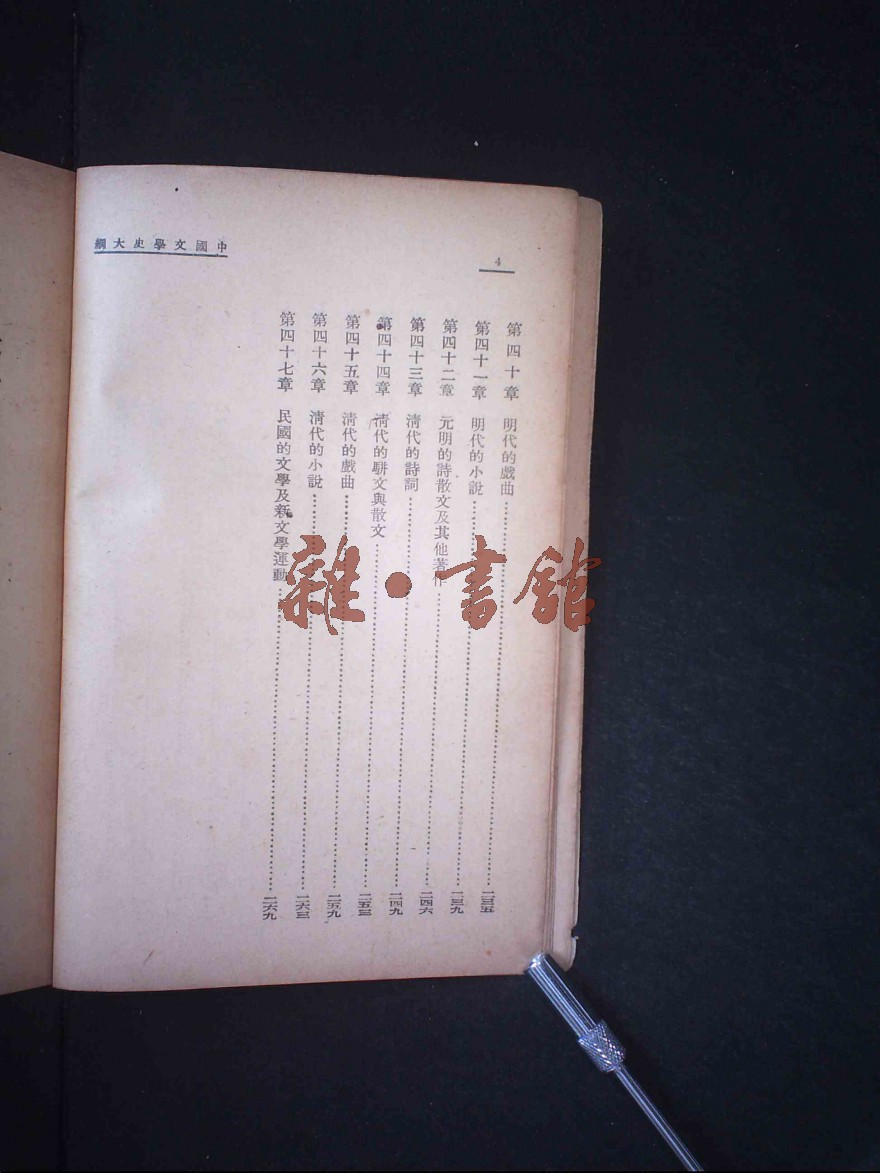 中國文學史大綱
4
第四十章 明代的戲曲 二三五
第四十一章 明代的小說 二三九
第四十二章 元明的詩散文及其他著作 二四六
第四十三章 清代的詩詞 二四九
第四十四章 清代的駢文與散文 二五三
第四十五章 清代的戲曲 二五九
第四十六章 清代的小說 二六三
第四十七章 民國的文學及新文學運動 二六九
雜·書館